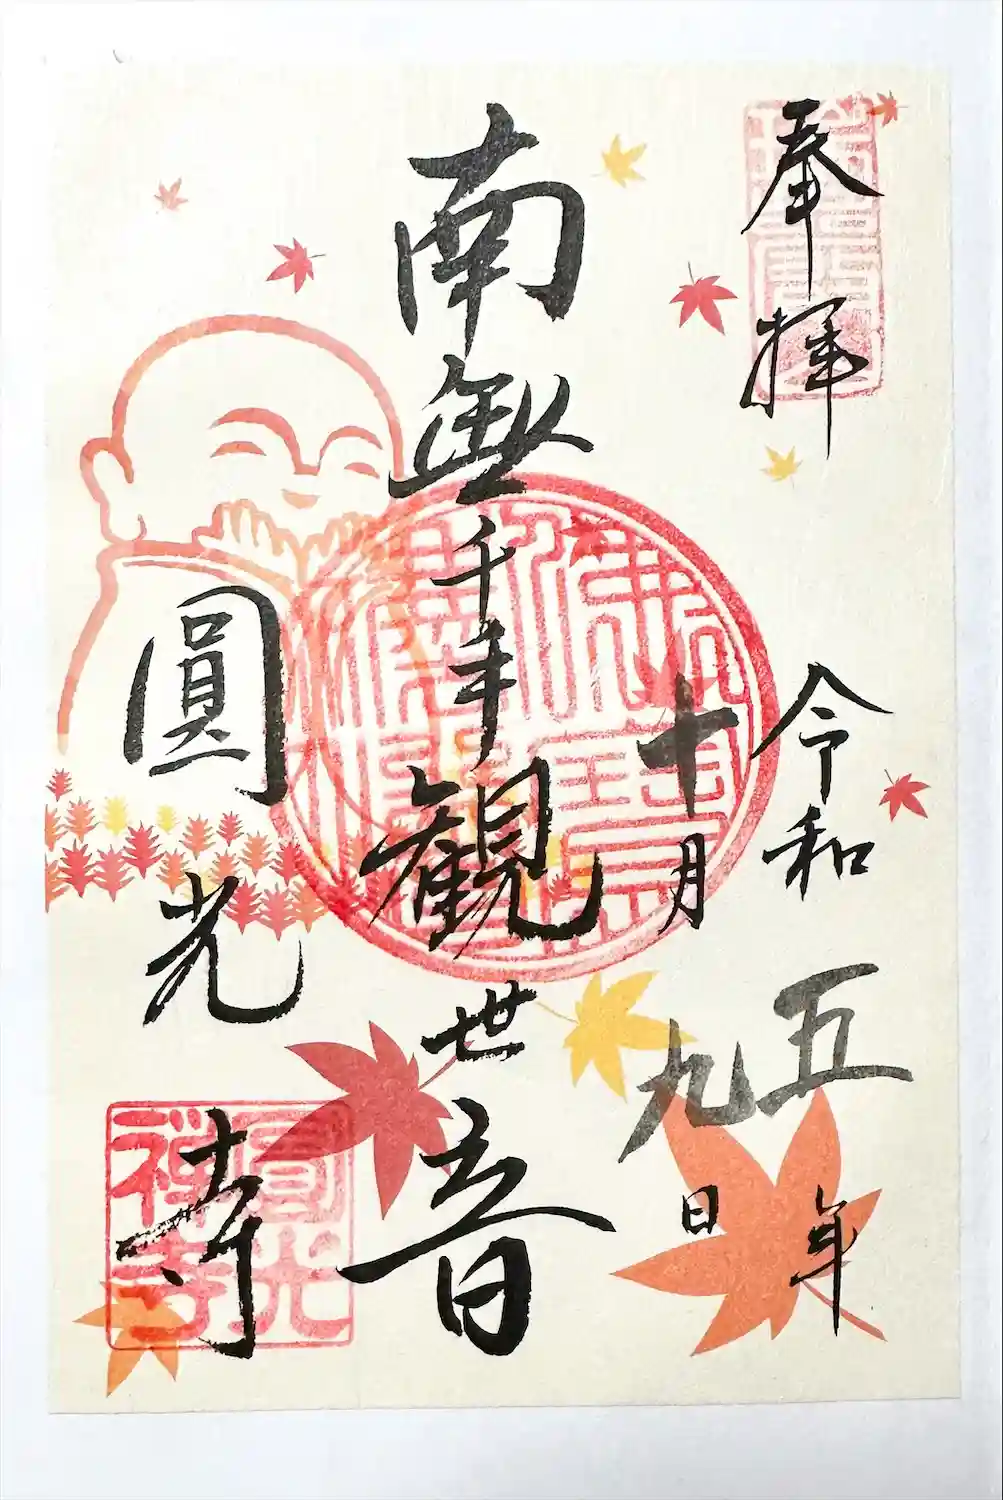 奉拝
令和五年
十月九日
南無千手観世音
圓光寺
圓光禅寺